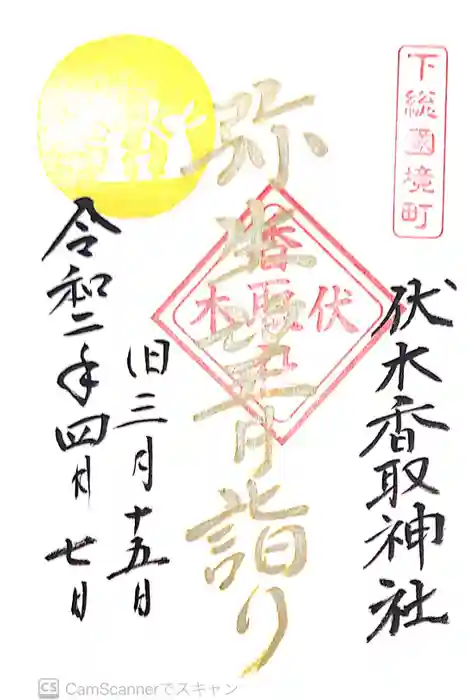 下総國境町
伏木香取神社
伏木香取
弥生望月詣り
旧三月十五日
令和二年四月七日
CS CamScannerでスキャン